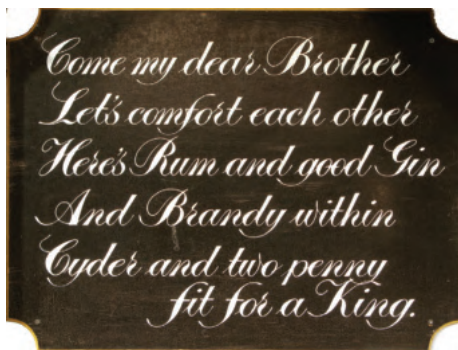 Come my dear Brother
Let's comfort each other
Here's Rum and good Gin
And Brandy within
Cyder and two penny
fit for a King.